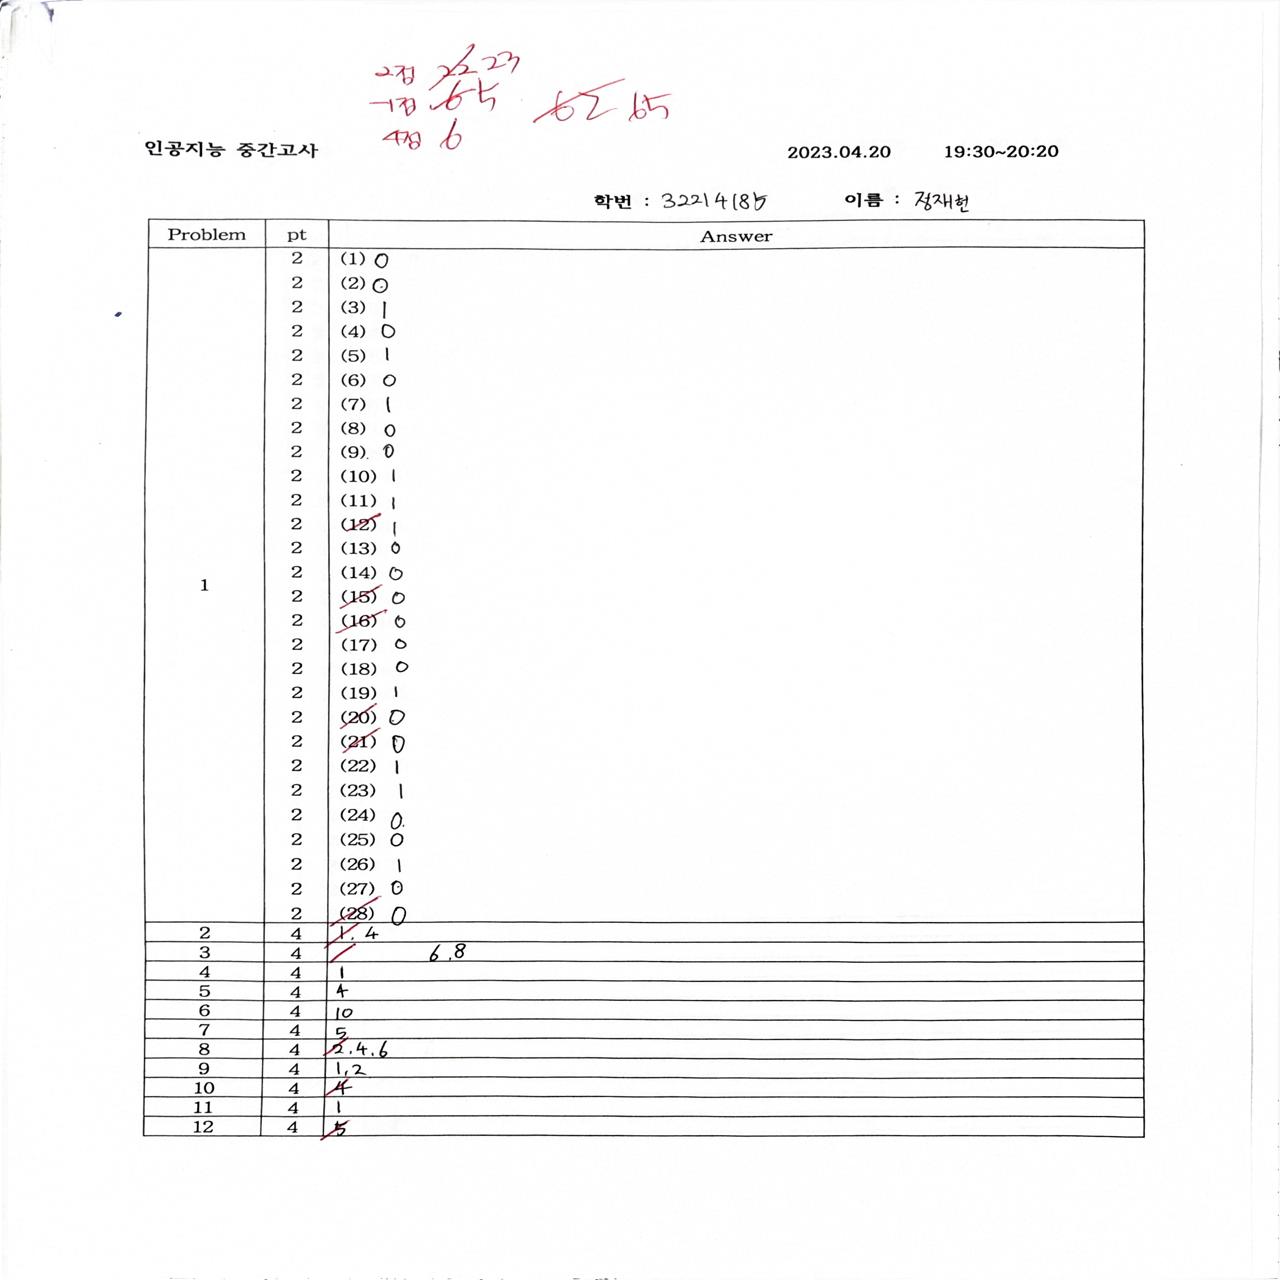 2점 22 23
-1점 6 5
4점 6
62 65
인공지능 중간고사 2023.04.20 19:30~20:20
학번 : 32214185 이름 : 정재헌
Problem pt Answer
2 (1) 0
2 (2) 0
2 (3) 1
2 (4) 0
2 (5) 1
2 (6) 0
2 (7) 1
2 (8) 0
2 (9) 0
2 (10) 1
2 (11) 1
2 (12) 1
2 (13) 0
2 (14) 0
1 2 (15) 0
2 (16) 0
2 (17) 0
2 (18) 0
2 (19) 1
2 (20) 0
2 (21) 0
2 (22) 1
2 (23) 1
2 (24) 0
2 (25) 0
2 (26) 1
2 (27) 0
2 (28) 0
2 4 1. 4
3 4 6.8
4 4 1
5 4 4
6 4 10
7 4 5
8 4 2.4.6
9 4 1,2
10 4 4
11 4 1
12 4 5